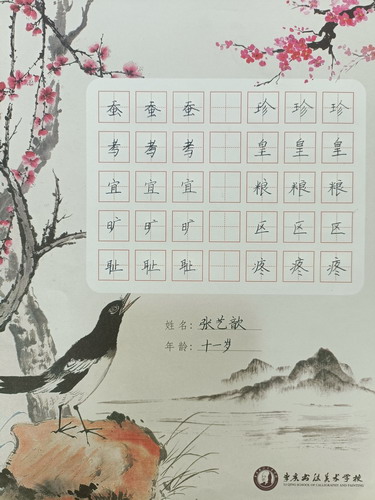 蚕 蚕 蚕 珍 珍 珍
考 考 考 皇 皇 皇
宜 宜 宜 粮 粮 粮
旷 旷 旷 区 区 区
耻 耻 耻 疼 疼 疼
姓名：张艺歆
年龄：十一岁
书法美术学校
SCHOOL OF CALLIGRAPHY AND PAINTING